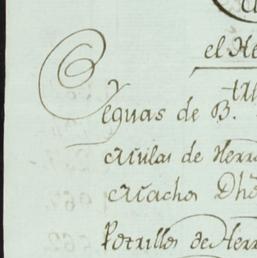 el He
Yeguas de B.
Mulas de Herr
Machos Dho
Potrillos de Herr